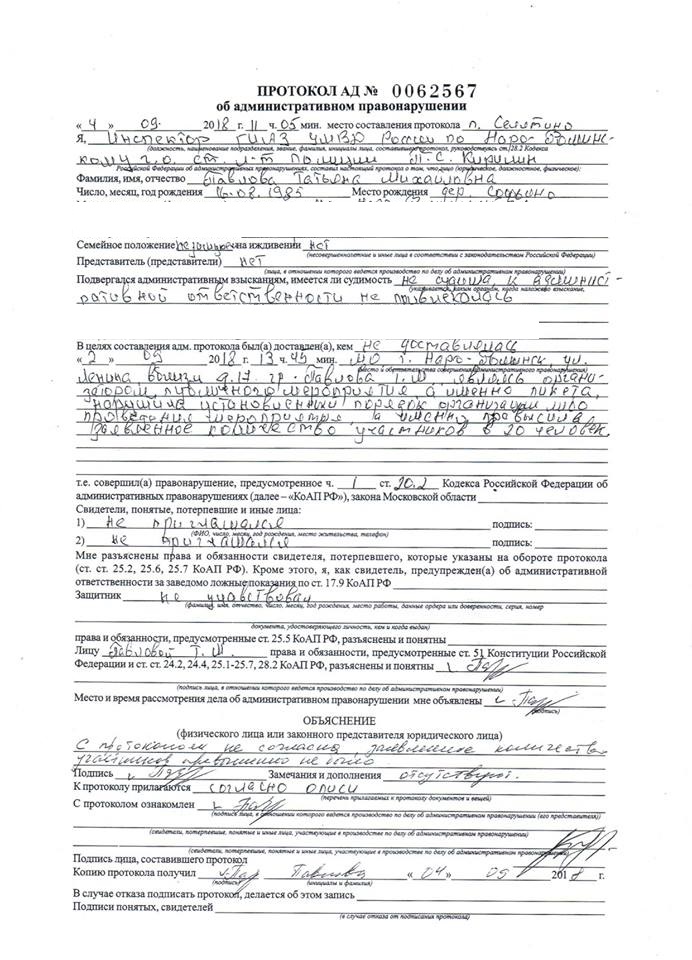 ПРОТОКОЛ АД № 0062567
об административном правонарушении
« 4 » 09. 2018 г. 11 ч. 05 мин. место составления протокола п. Селятино
Я, Инспектор УМВД России по Наро-Фоминс-
(должность, наименование подразделения, звание, фамилия, инициалы лица, составившего протокол, руководствуясь ст.28.2 Кодекса
кому г.о. ст. л-т полиции Кирилин
Российской Федерации об административных правонарушениях, составил настоящий протокол о том, что лицо (юридическое, должностное, физическое):
Фамилия, имя, отчество Павлова Татьяна Михайловна
Число, месяц, год рождения 16.02.1985 Место рождения дер. Софьино
Семейное положение на иждивении нет
(несовершеннолетние и иные лица в соответствии с законодательством Российской Федерации)
Представитель (представители) нет
(лица, в отношении которого ведется производство по делу об административном правонарушении)
Подвергался административным взысканиям, имеется ли судимость не судима, к админист-
(указывается, каким органом, когда наложено взыскание,
ративной ответственности не привлекалась
В целях составления адм. протокола был(а) доставлен(а), кем не доставлялась
« 2 » 09 2018 г. 13 ч. 45 мин. МО г. Наро-Фоминск, ул.
(место и обстоятельства совершения административного правонарушения)
Ленина, вблизи д.17. гр. Павлова Т.М. являясь органи-
затором публичного мероприятия а именно пикета,
нарушила установленный порядок организации либо
проведения мероприятия, а именно превысила
заявленное количество участников в 20 человек.
т.е. совершил(а) правонарушение, предусмотренное ч. 1 ст. 20.2 Кодекса Российской Федерации об
административных правонарушениях (далее – «КоАП РФ»), закона Московской области
Свидетели, понятые, потерпевшие и иные лица:
1) не приглашались подпись:
(ФИО, число, месяц, год рождения, место жительства, телефон)
2) не приглашались подпись:
Мне разъяснены права и обязанности свидетеля, потерпевшего, которые указаны на обороте протокола
(ст. ст. 25.2, 25.6, 25.7 КоАП РФ). Кроме этого, я, как свидетель, предупрежден(а) об административной
ответственности за заведомо ложные показания по ст. 17.9 КоАП РФ
Защитник не участвовал
(фамилия, имя, отчество, число, месяц, год рождения, место работы, данные ордера или доверенности, серия, номер
документа, удостоверяющего личность, кем и когда выдан)
права и обязанности, предусмотренные ст. 25.5 КоАП РФ, разъяснены и понятны
Лицу Павловой Т.М. права и обязанности, предусмотренные ст. 51 Конституции Российской
Федерации и ст. ст. 24.2, 24.4, 25.1-25.7, 28.2 КоАП РФ, разъяснены и понятны
(подпись лица, в отношении которого ведется производство по делу об административном правонарушении)
Место и время рассмотрения дела об административном правонарушении мне объявлены
(подпись)
ОБЪЯСНЕНИЕ
(физического лица или законного представителя юридического лица)
С протоколом не согласна, заявленное количество
участников превышено не было.
Подпись Замечания и дополнения отсутствуют.
К протоколу прилагаются согласно описи
(перечень прилагаемых к протоколу документов и вещей)
С протоколом ознакомлен
(подпись лица, в отношении которого ведется производство по делу об административном правонарушении (его представителя))
(свидетели, потерпевшие, понятые и иные лица, участвующие в производстве по делу об административном правонарушении)
(свидетели, потерпевшие, понятые и иные лица, участвующие в производстве по делу об административном правонарушении)
Подпись лица, составившего протокол
Копию протокола получил Павлова « 04 » 09 2018 г.
(подпись) (инициалы и фамилия)
В случае отказа подписать протокол, делается об этом запись
Подписи понятых, свидетелей
(в случае отказа от подписания протокола)